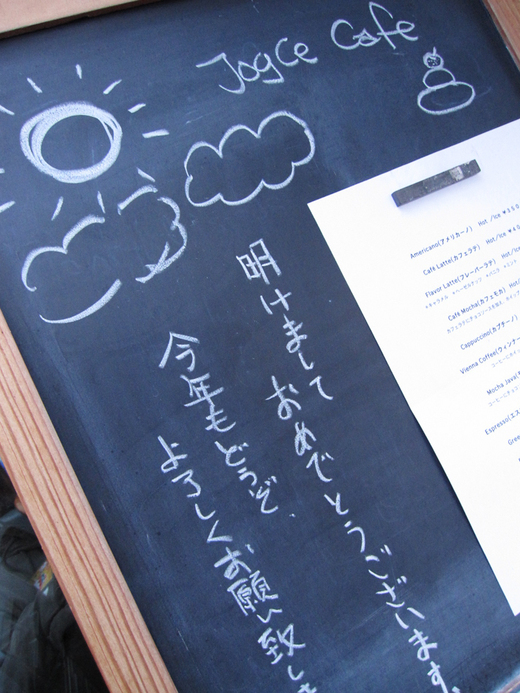 Joyce Cafe
明けまして
おめでとうございます。
今年もどうぞ、
よろしくお願い致しま
Americano(アメリカーノ) Hot /Ice
Café Latte(カフェラテ) Hot /Ice
Flavor Latte(フレーバーラテ) Hot
Café Mocha(カフェモカ) Hot
Cappuccino(カプチーノ)
Vienna Coffee(ウィンナー
Mocha Java(
Espresso(エス
Gree